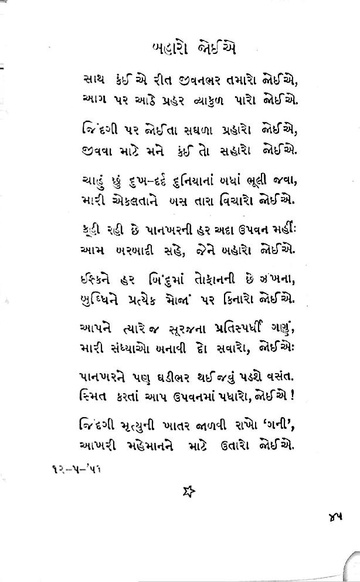 બહારો જોઈએ
સાથ કંઈ એ રીત જીવનભર તમારો જોઈએ,
આગ પર આઠે પ્રહર વ્યાકુળ પારો જોઈએ.
જિંદગી પર જોઈતા સઘળા પ્રહારો જોઈએ,
જીવવા માટે મને કંઈ તો સહારો જોઈએ.
ચાહું છું દુખ-દર્દ દુનિયાનાં બધાં ભૂલી જવા,
મારી એકલતાને બસ તારા વિચારો જોઈએ.
કહી રહી છે પાનખરની હર અદા ઉપવન મહીંઃ
આમ બરબાદી સહે, જેને બહારો જોઈએ.
ઈશ્કને હર બિંદુમાં તોફાનની છે ઝંખના,
બુદ્ધિને પ્રત્યેક મોજાં પર કિનારો જોઈએ.
આપને ત્યારે જ સૂરજના પ્રતિસ્પર્ધી ગણું,
મારી સંધ્યાઓ બનાવી દો સવારો, જોઈએઃ
પાનખરને પણ ઘડીભર થઈ જવું પડશે વસંત.
સ્મિત કરતાં આપ ઉપવનમાં પધારો, જોઈએ !
જિંદગી મૃત્યુની ખાતર જાળવી રાખો ‘ગની’,
આખરી મહેમાનને માટે ઉતારો જોઈએ.
૧૨-૫-’૫૧
૪૫